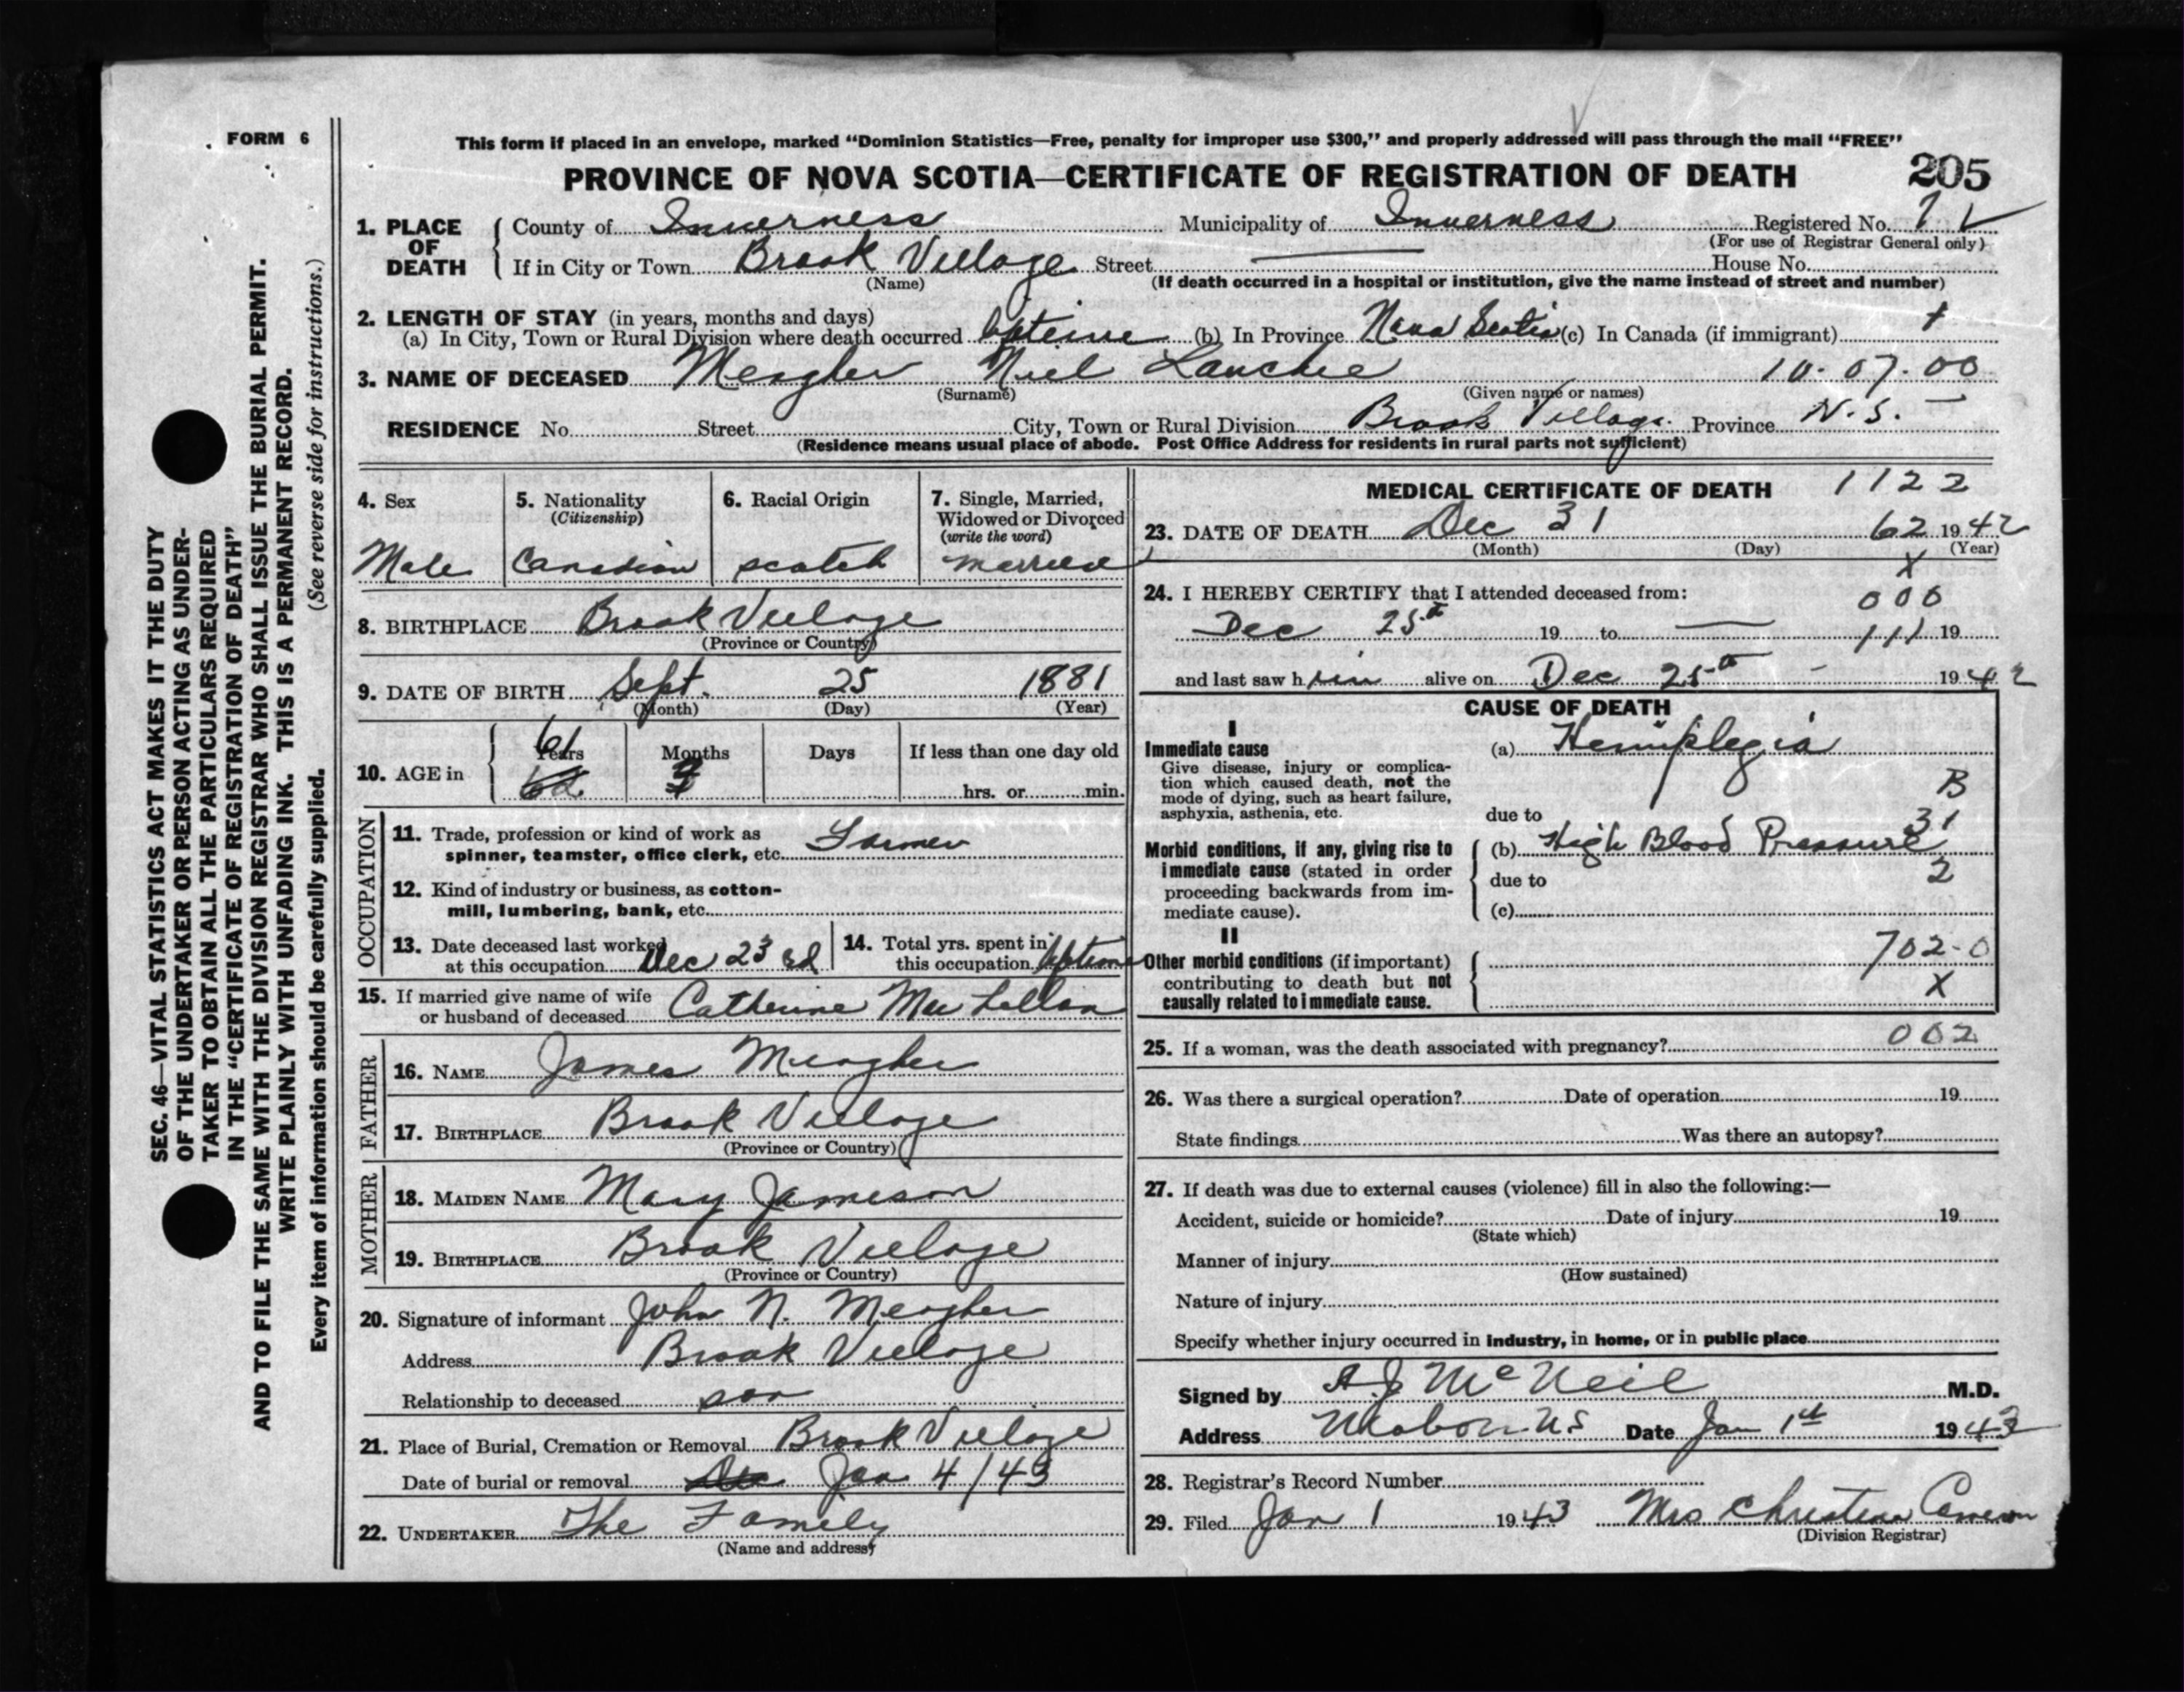 FORM 6
This form if placed in an envelope, marked "Dominion Statistics—Free, penalty for improper use $300," and properly addressed will pass through the mail "FREE"
PROVINCE OF NOVA SCOTIA—CERTIFICATE OF REGISTRATION OF DEATH 205
1. PLACE OF DEATH
County of Inverness Municipality of Inverness Registered No.
(For use of Registrar General only)
If in City or Town Brook Village Street — House No.
(Name) (If death occurred in a hospital or institution, give the name instead of street and number)
2. LENGTH OF STAY (in years, months and days)
(a) In City, Town or Rural Division where death occurred (b) In Province Nova Scotia (c) In Canada (if immigrant)
3. NAME OF DECEASED Meagher Niel Lauchie 10-07-00
(Surname) (Given name or names)
RESIDENCE No. Street City, Town or Rural Division Brook Village. Province N.S.
(Residence means usual place of abode. Post Office Address for residents in rural parts not sufficient)
4. Sex
Male
5. Nationality
(Citizenship)
Canadian
6. Racial Origin
scotch
7. Single, Married,
Widowed or Divorced
(write the word)
married
8. BIRTHPLACE Brook Village
(Province or Country)
9. DATE OF BIRTH Sept. 25 1881
(Month) (Day) (Year)
10. AGE in Years Months Days If less than one day old
61 hrs. or min.
62 3
OCCUPATION
11. Trade, profession or kind of work as
spinner, teamster, office clerk, etc. Farmer
12. Kind of industry or business, as cotton-
mill, lumbering, bank, etc.
13. Date deceased last worked
at this occupation Dec 23 rd
14. Total yrs. spent in
this occupation
15. If married give name of wife
or husband of deceased Catherine Mac Lellan
FATHER
16. NAME James Meagher
17. BIRTHPLACE Brook Village
(Province or Country)
MOTHER
18. MAIDEN NAME Mary Jameson
19. BIRTHPLACE Brook Village
(Province or Country)
20. Signature of informant John N. Meagher
Address Brook Village
Relationship to deceased son
21. Place of Burial, Cremation or Removal Brook Village
Date of burial or removal Jan 4/43
22. UNDERTAKER The Family
(Name and address)
MEDICAL CERTIFICATE OF DEATH 1122
23. DATE OF DEATH Dec 31 62 1942
(Month) (Day) (Year)
X
24. I HEREBY CERTIFY that I attended deceased from: 000
Dec 25th 19 to — 111 19
and last saw him alive on Dec 25th - 1942
CAUSE OF DEATH
I
Immediate cause
Give disease, injury or complica-
tion which caused death, not the
mode of dying, such as heart failure,
asphyxia, asthenia, etc.
(a) Hemiplegia
B
due to
31
Morbid conditions, if any, giving rise to
immediate cause (stated in order
proceeding backwards from im-
mediate cause).
(b) High Blood Pressure
due to 2
(c)
II
Other morbid conditions (if important)
contributing to death but not
causally related to immediate cause.
702-0
X
25. If a woman, was the death associated with pregnancy? 002
26. Was there a surgical operation? Date of operation 19
State findings Was there an autopsy?
27. If death was due to external causes (violence) fill in also the following:—
Accident, suicide or homicide? Date of injury 19
(State which)
Manner of injury
(How sustained)
Nature of injury
Specify whether injury occurred in industry, in home, or in public place
Signed by A.J McNeil M.D.
Address Mabou N.S Date Jan 1st 1943
28. Registrar's Record Number
29. Filed Jan 1 1943 Mrs Christena Cameron
(Division Registrar)
SEC. 46—VITAL STATISTICS ACT MAKES IT THE DUTY
OF THE UNDERTAKER OR PERSON ACTING AS UNDER-
TAKER TO OBTAIN ALL THE PARTICULARS REQUIRED
IN THE "CERTIFICATE OF REGISTRATION OF DEATH"
AND TO FILE THE SAME WITH THE DIVISION REGISTRAR WHO SHALL ISSUE THE BURIAL PERMIT.
WRITE PLAINLY WITH UNFADING INK. THIS IS A PERMANENT RECORD.
Every item of information should be carefully supplied. (See reverse side for instructions.)